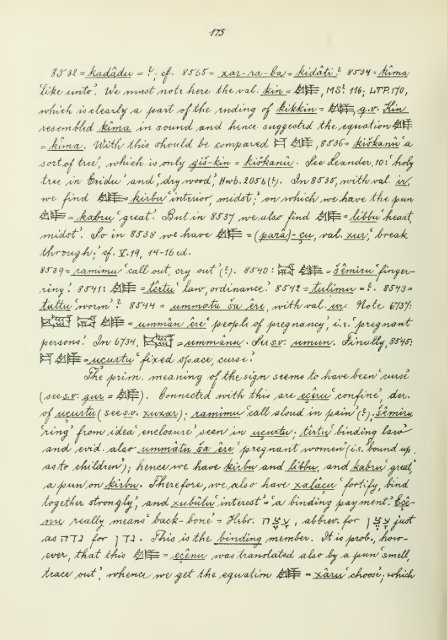 175
8532 = kadâdu = ?; cf. 8565 = xar-ra-ba = kidâti? 8534 = kîma
'like unto'. We must note here the val. kin = MSº. 116; LTP. 170,
which is clearly a part of the ending of kikkin = q.v. Kin
resembled kîma in sound and hence suggested the equation
= kîma. With this should be compared 8536 = kiškanû 'a
sort of tree', which is only giš-kin = kiškanû. See Leander, 10: 'holy
tree in Eridu' and 'dry wood', Hwb. 205b (?). In 8535, with val. ir,
we find = kirbu 'interior, midst', on which we have the pun
= kabru 'great'. But in 8537 we also find = libbu 'heart,
midst'. So in 8538 we have = (parâ)-çu, val. xur, 'break
through'; cf. V. 19, 14-16 cd.
8539 = ramimu 'call out, cry out' (?). 8540: = šêmiru 'finger-
ring'. 8541: = têrtu 'law, ordinance'. 8542 = tulimu = ?. 8543 =
tultu 'worm'? 8544 = ummatu ša êre, with val. ur. Note 6737:
= ummân êrê 'people of pregnancy', i.e. 'pregnant
persons'. In 6734, = ummânu. See s.v. umun. Finally, 8545:
= uçurtu 'fixed space, curse'.
The prim. meaning of the sign seems to have been 'curse'
(see s.v. gur = ). Connected with this are eçêru 'confine', der.
of uçurtu (see s.v. xuxar); ramimu 'call aloud in pain' (?); šêmiru
'ring' from idea 'enclosure' seen in uçurtu; têrtu 'binding law'
and evid. also ummâtu ša êre 'pregnant women' (i.e. 'bound up
as to children'); hence we have kirbu and libbu, and kabru 'great',
a pun on kirbu. Therefore, we also have xalâçu 'fortify, bind
together strongly', and xubûlu 'interest' = 'a binding payment'. Eçê-
nu really means 'back-bone' = Hebr. עצה, abbrev. for עצן just
as נדה for נדן. This is the binding member. It is prob., how-
ever, that this = eçênu was translated also by a pun 'smell,
trace out', whence we get the equation = xâru 'choose', which